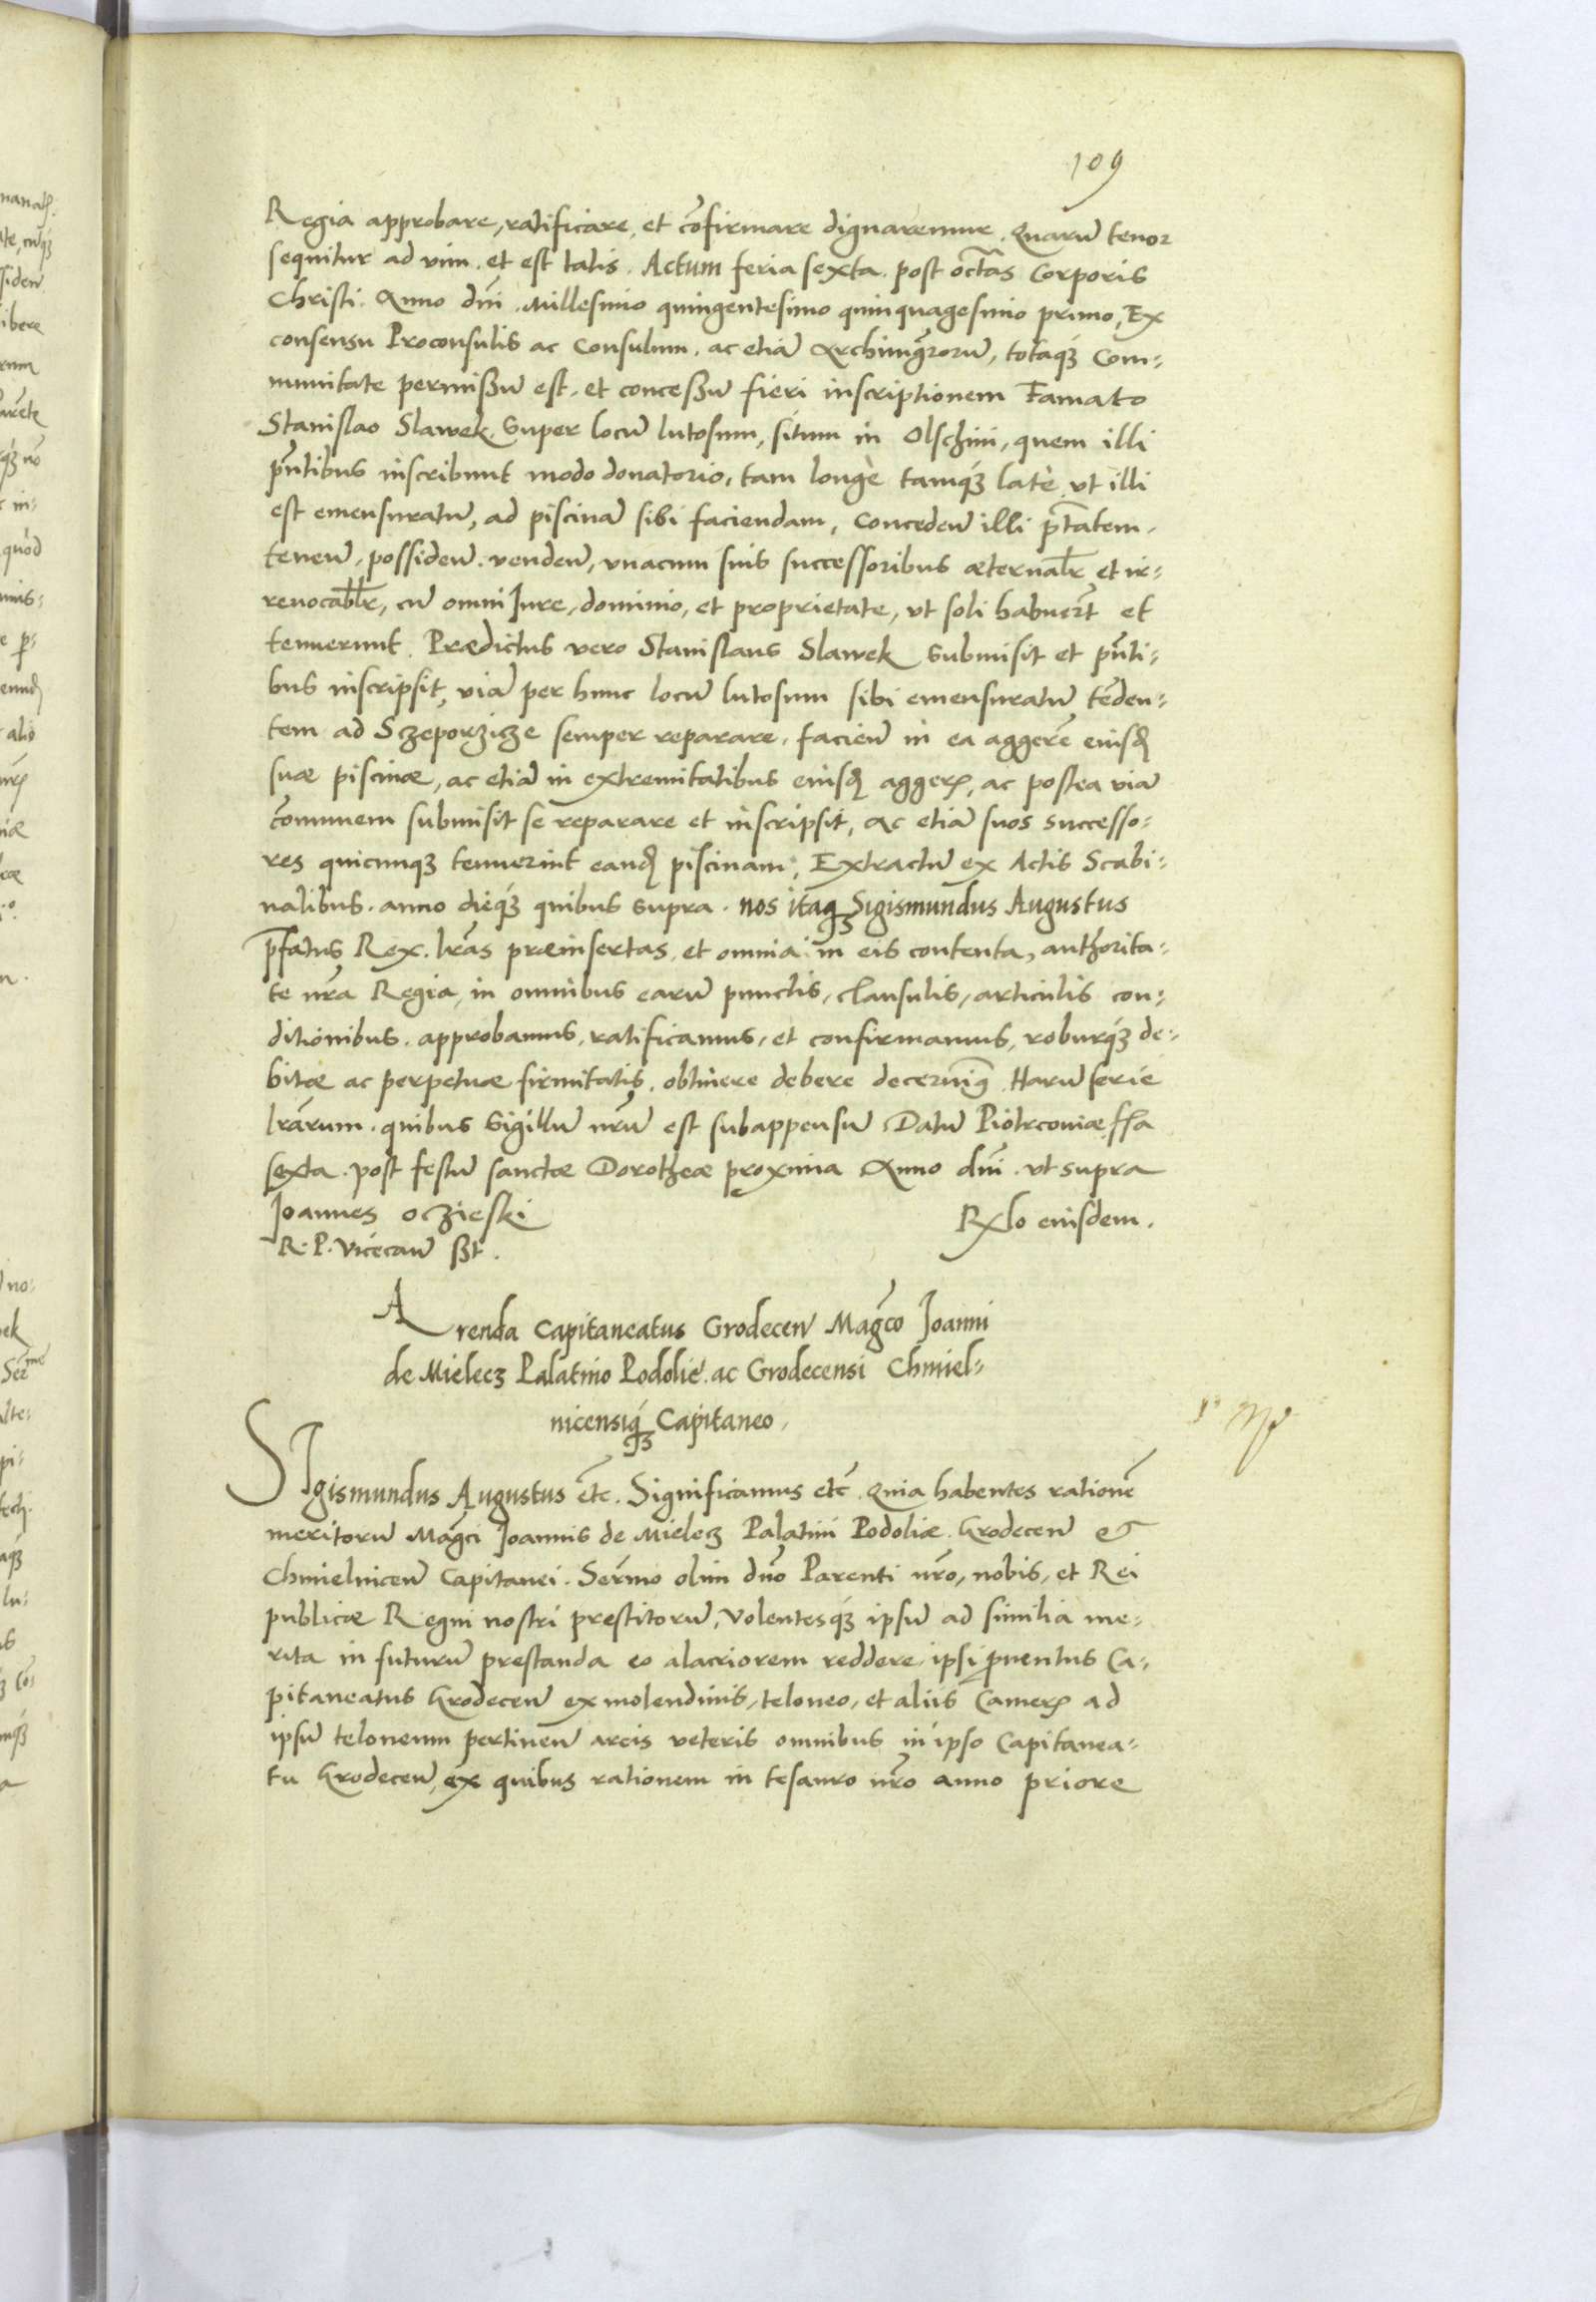 109
Regia approbare, ratificare, et cõfirmare dignaremur. Quarũ tenor
sequitur ad vim. et est talis. Actum feria sexta. post octãs Corporis
Christi. Anno dñi. Millesimo quingentesimo quinquagesimo primo, Ex
consensu Proconsulis ac Consulum. ac etiã Archimgr̃orũ, totaqȝ Com-
munitate permißũ est. et conceßũ fieri inscriptionem Famato
Stanislao Slawek. Super locũ lutosum, situm in Olschini, quem illi
pñtibus inscribunt modo donatorio, tam longè tamqȝ latè ut illi
est emensuratũ, ad piscinã sibi faciendam, Conceden̄ illi ptãtem.
tenen̄. possiden̄. venden̄, vnacum suis successoribus æternalr̃ et ir-
reuocablr̃, cũ omni Jure, dominio, et proprietate, vt soli habuer̃t et
tenuerunt. Prædictus vero Stanislaus Slawek submisit et pñti-
bus inscripsit, viã per hunc locũ lutosum sibi emensuratũ tẽden-
tem ad Sczeporzicze semper reparare. facien̄ in ea aggerẽ eiusdꝫ
suæ piscinæ, ac etiã in extremitatibus eiusdꝫ aggerꝭ, ac postea viã
cõmunem submisit se reparare et inscripsit, ac etiã suos successo-
res quicunqȝ tenuerint eandꝫ piscinam, Extractũ ex Actis Scabi-
nalibus. anno dieqȝ quibus supra. nos itaqȝ Sigismundus Augustus
p̃fatus Rex. lr̃as præinsertas, et omnia in eis contenta, authorita-
te nr̃a Regia, in omnibus earũ punctis, clausulis, articulis con-
ditionibus. approbamus, ratificamus, et confirmamus, roburqȝ de-
bitæ ac perpetuæ firmitatis. obtinere debere decernimꝰ Harũ serie
lr̃arum. quibus Sigillũ nr̃ũ est subappensũ. Datũ Piotrcouiæ ffa
sexta. post festũ sanctæ Dorotheæ proxima Anno dñi. ut supra
Joannes Oczieski
Rxlo eiusdem.
R. P. Vicecan̄ ßt.
Arenda Capitaneatus Grodecen̄ Magc̃o Joanni
de Mielecz Palatino Podolie. ac Grodecensi Chmiel-
nicensiqȝ Capitaneo.
SIgismundus Augustus etc̃. Significamus etc̃. Quia habentes rationẽ
meritorũ Magc̃i Joannis de Mielecz Palatini Podoliæ. Grodecen̄ et
Chmielnicen̄ Capitanei. Serm̃o olim dño Parenti nr̃o, nobis, et Rei
publicæ Regni nostri prestitorũ, Volentesqȝ ipsũ ad similia me-
rita in futurũ prestanda eo alacriorem reddere ipsi ꝓuentus Ca-
pitaneatus Grodecen̄ ex molendinis, teloneo, et aliis Camerꝭ ad
ipsũ teloneum pertinen̄ arcis veteris omnibus in ipso Capitanea-
tu Grodecen̄, ex quibus rationem in tesauro nr̃o anno priore